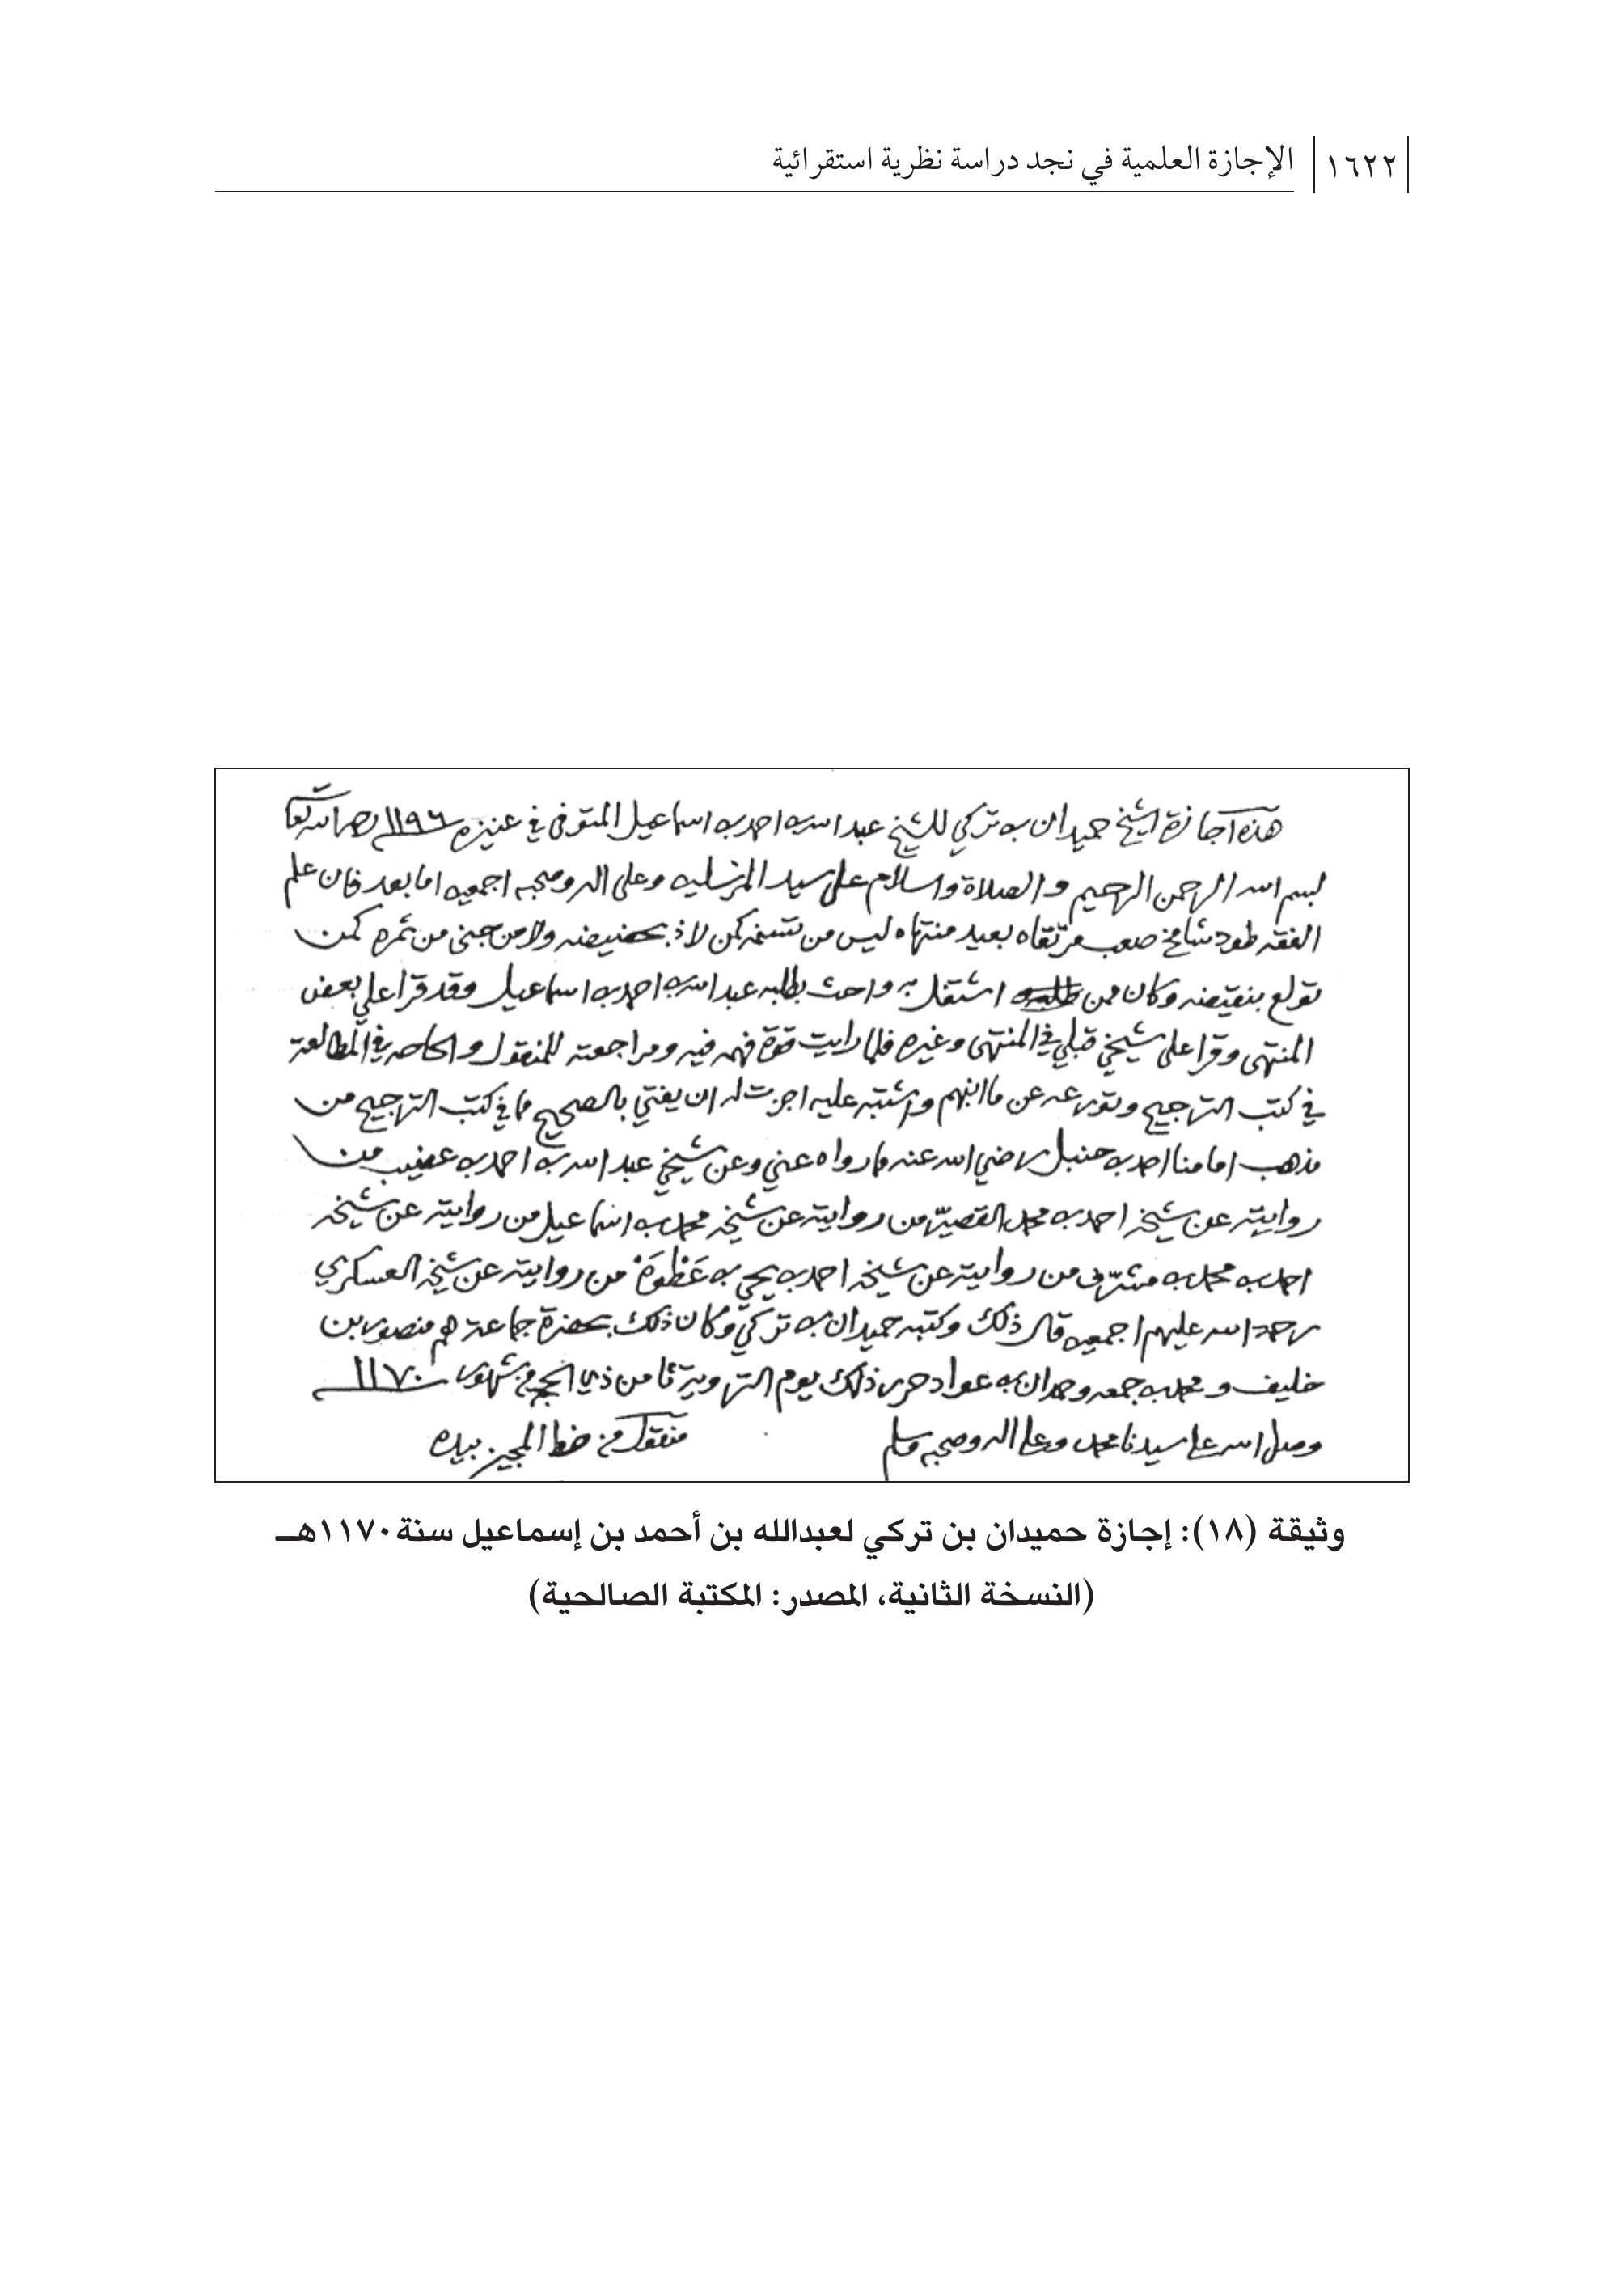 ١٦٢٢ الإجازة العلمية في نجد دراسة نظرية استقرائية
هذه اجازة الشيخ حميدان بن تركي للشيخ عبد الله بن احمد بن اسماعيل المتوفى في عنيزه ١١٩٦ رحمه الله تعا
بسم الله الرحمن الرحيم والصلاة والسلام على سيد المرسلين وعلى اله وصحبه اجمعين اما بعد فان علم
الفقه طود شامخ صعب مرتقاه بعيد منتهاه ليس من تسنمه كمن لاذ بحضيضه ولا من جنى من ثمره كمن
تولع بنقيضه وكان ممن اشتغل به واحث بطلبه عبد الله بن احمد بن اسماعيل وقد قرا علي بعض
المنتهى وقرا على شيخي قبلي في المنتهى وغيره فلما رايت قوة فهمه فيه ومراجعته للمنقول والحاصه في المطالعة
في كتب الترجيح وتورعه عن ما انبهم واشتبه عليه اجزت له ان يفتي بالصحيح مما في كتب الترجيح من
مذهب امامنا احمد بن حنبل رضي الله عنه مما رواه عني وعن شيخي عبد الله بن احمد بن عضيب من
روايته عن شيخه احمد بن محمد القصير من روايته عن شيخه محمد بن اسماعيل من روايته عن شيخه
احمد بن محمد بن مشرف من روايته عن شيخه احمد بن يحي بن عَطْوَة من روايته عن شيخه العسكري
رحمة الله عليهم اجمعين قال ذلك وكتبه حميدان بن تركي وكان ذلك بحضرة جماعة هم منصور بن
خليف و محمد بن جمعه وحمدان بن عواد حرر ذلك يوم التروية ثامن ذي الحجه من شهور ١١٧٠
وصلى الله على سيدنا محمد وعلى اله وصحبه وسلم منقول من خط المجيز بيده
وثيقة (١٨): إجازة حميدان بن تركي لعبدالله بن أحمد بن إسماعيل سنة ١١٧٠هـ
(النسخة الثانية، المصدر: المكتبة الصالحية)